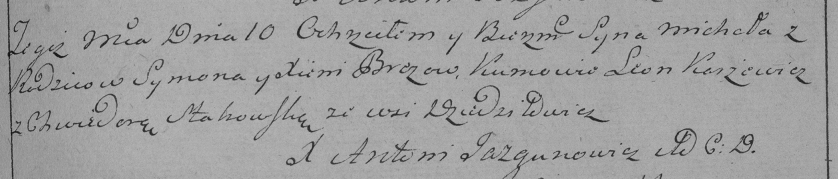 Tegoż Mca Dnia 10 Ochrzciłem y Bierzm Syna michała z
Rodzicow Symona y Xieni Brezow, Kumowie Leon Karżewicz
z Chwiedorą Stakowską ze wsi Dziedziłowicz
X Antoni Jazgunowicz C: D.